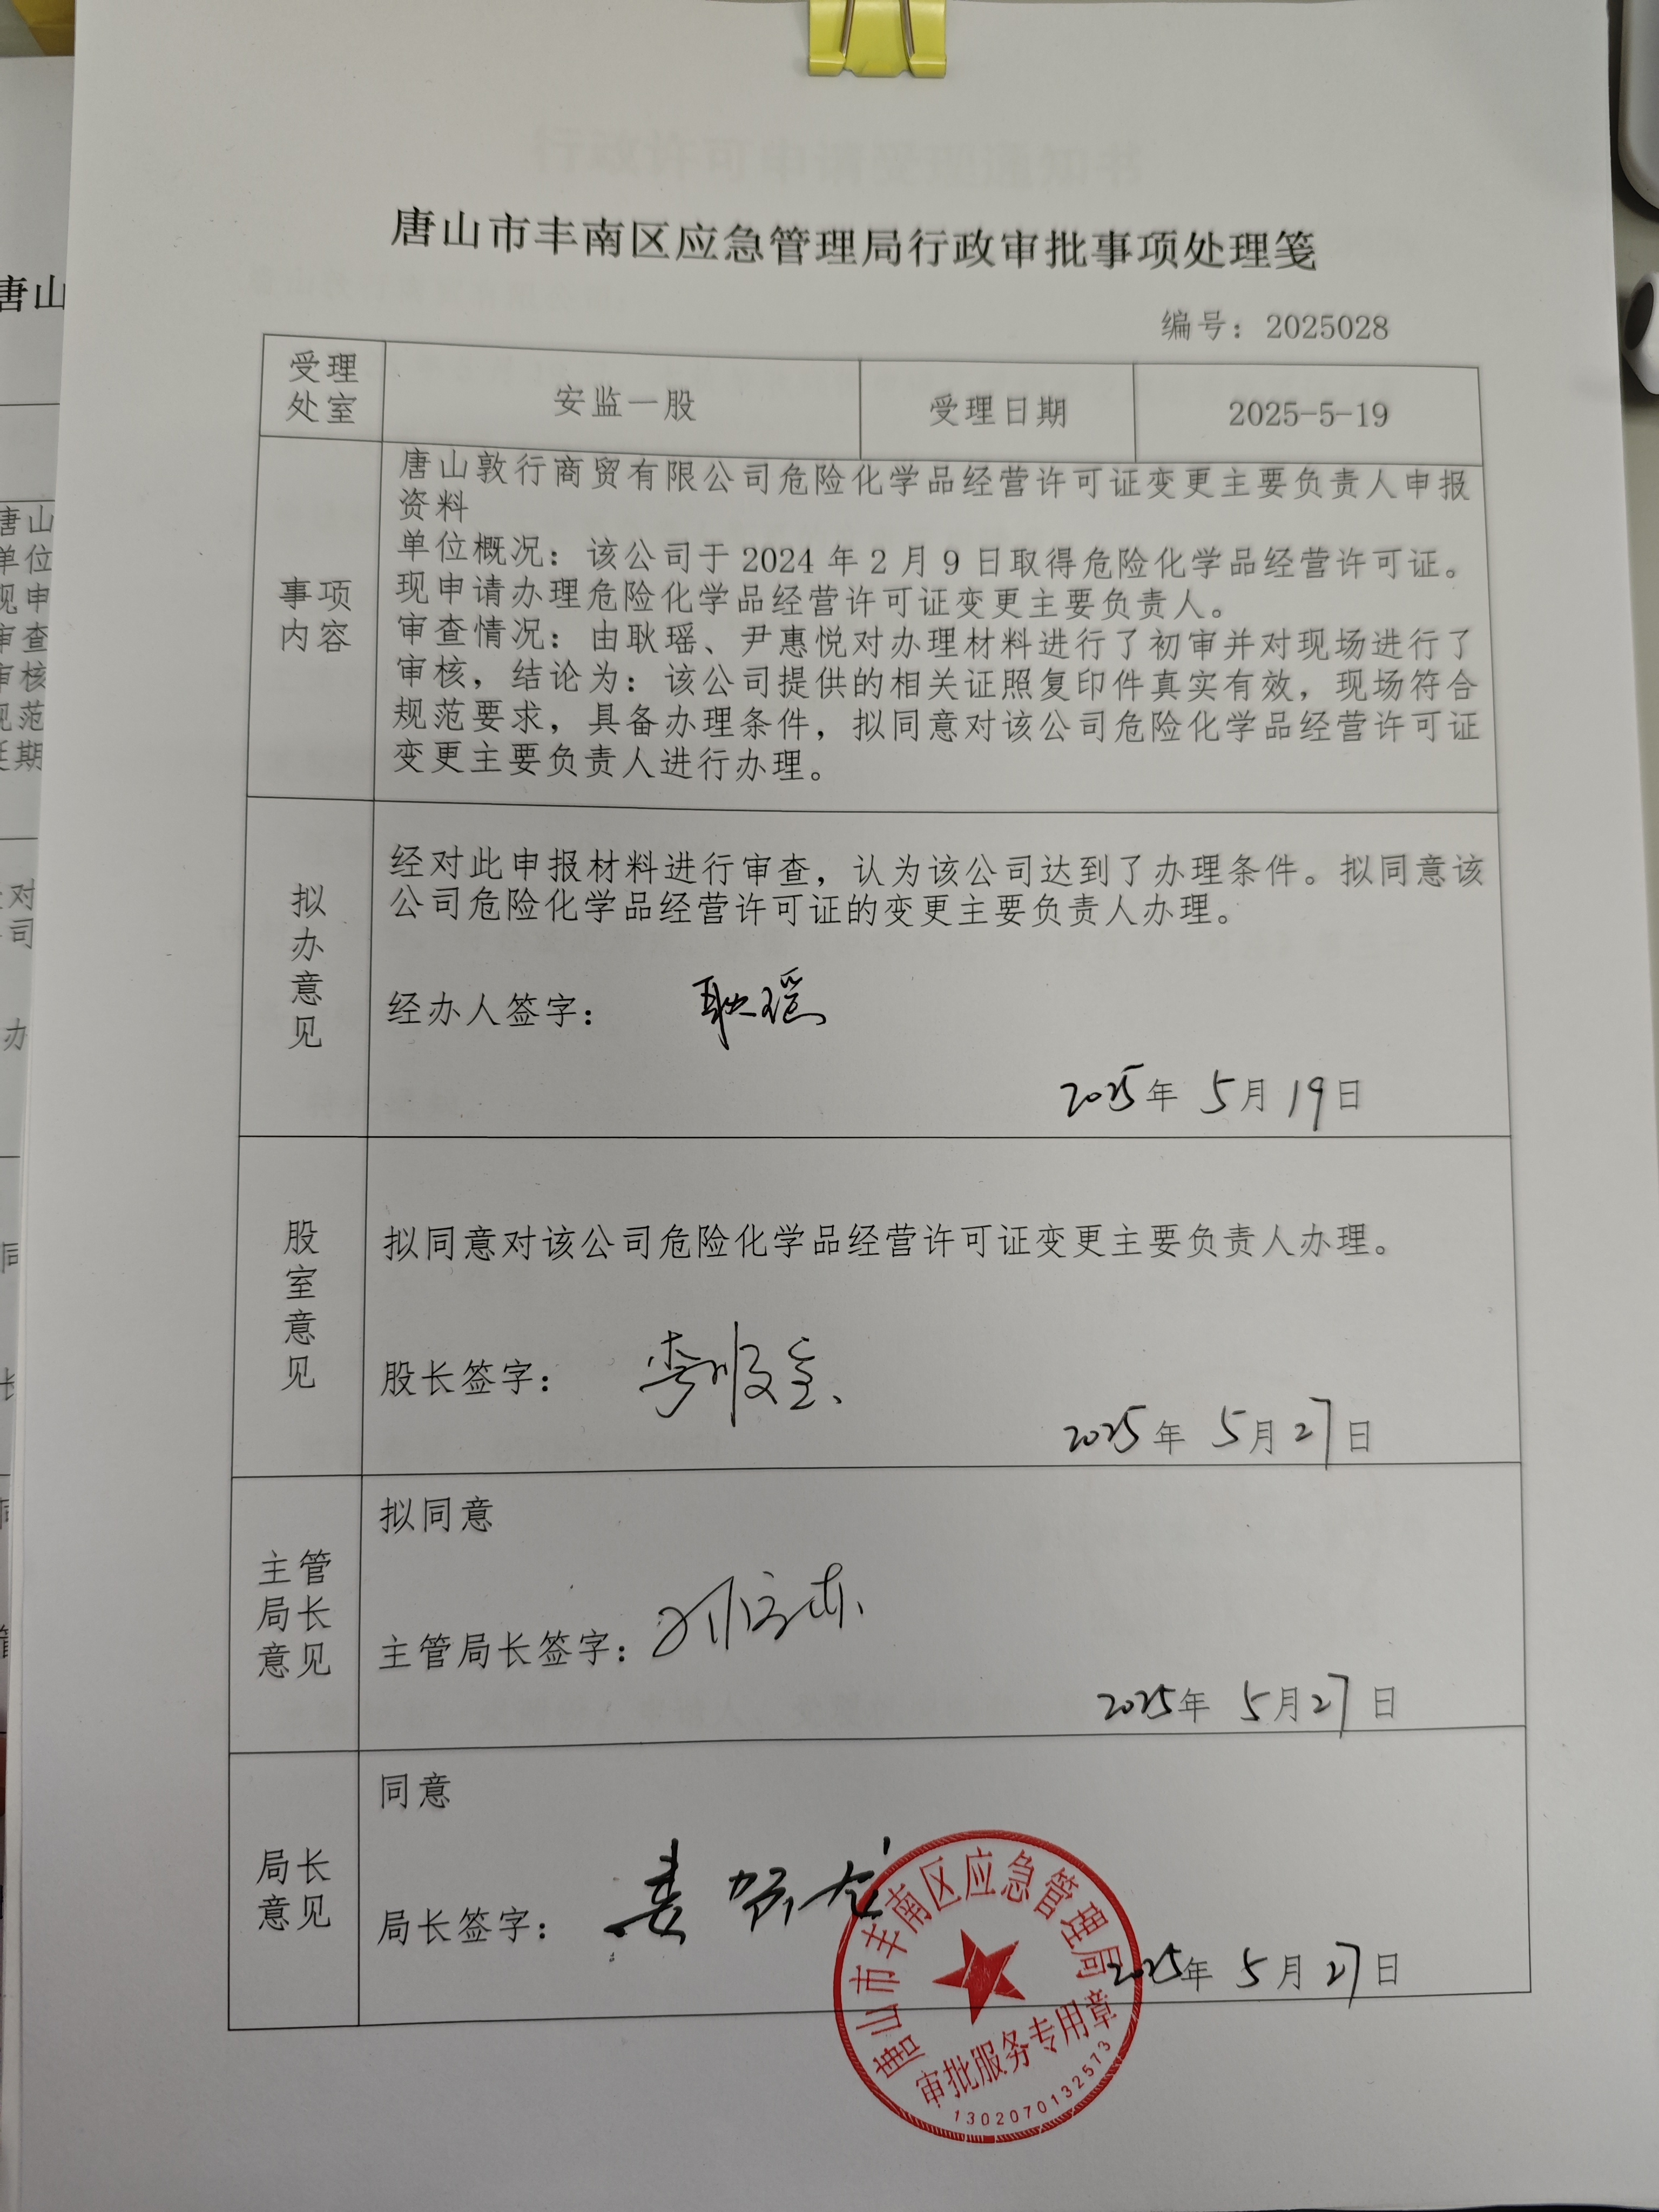 唐山市丰南区应急管理局行政审批事项处理笺
编号：2025028
受理处室
安监一股
受理日期
2025-5-19
事项内容
唐山敦行商贸有限公司危险化学品经营许可证变更主要负责人申报
资料
单位概况：该公司于 2024 年 2 月 9 日取得危险化学品经营许可证。
现申请办理危险化学品经营许可证变更主要负责人。
审查情况：由耿瑶、尹惠悦对办理材料进行了初审并对现场进行了
审核，结论为：该公司提供的相关证照复印件真实有效，现场符合
规范要求，具备办理条件，拟同意对该公司危险化学品经营许可证
变更主要负责人进行办理。
拟办意见
经对此申报材料进行审查，认为该公司达到了办理条件。拟同意该
公司危险化学品经营许可证的变更主要负责人办理。
经办人签字： 耿瑶
2025年 5月19日
股室意见
拟同意对该公司危险化学品经营许可证变更主要负责人办理。
股长签字：
2025年 5月27日
主管局长意见
拟同意
主管局长签字：
2025年 5月27日
局长意见
同意
局长签字： 姜贺龙
2025年 5月27日
唐山市丰南区应急管理局
审批服务专用章
1302070132573